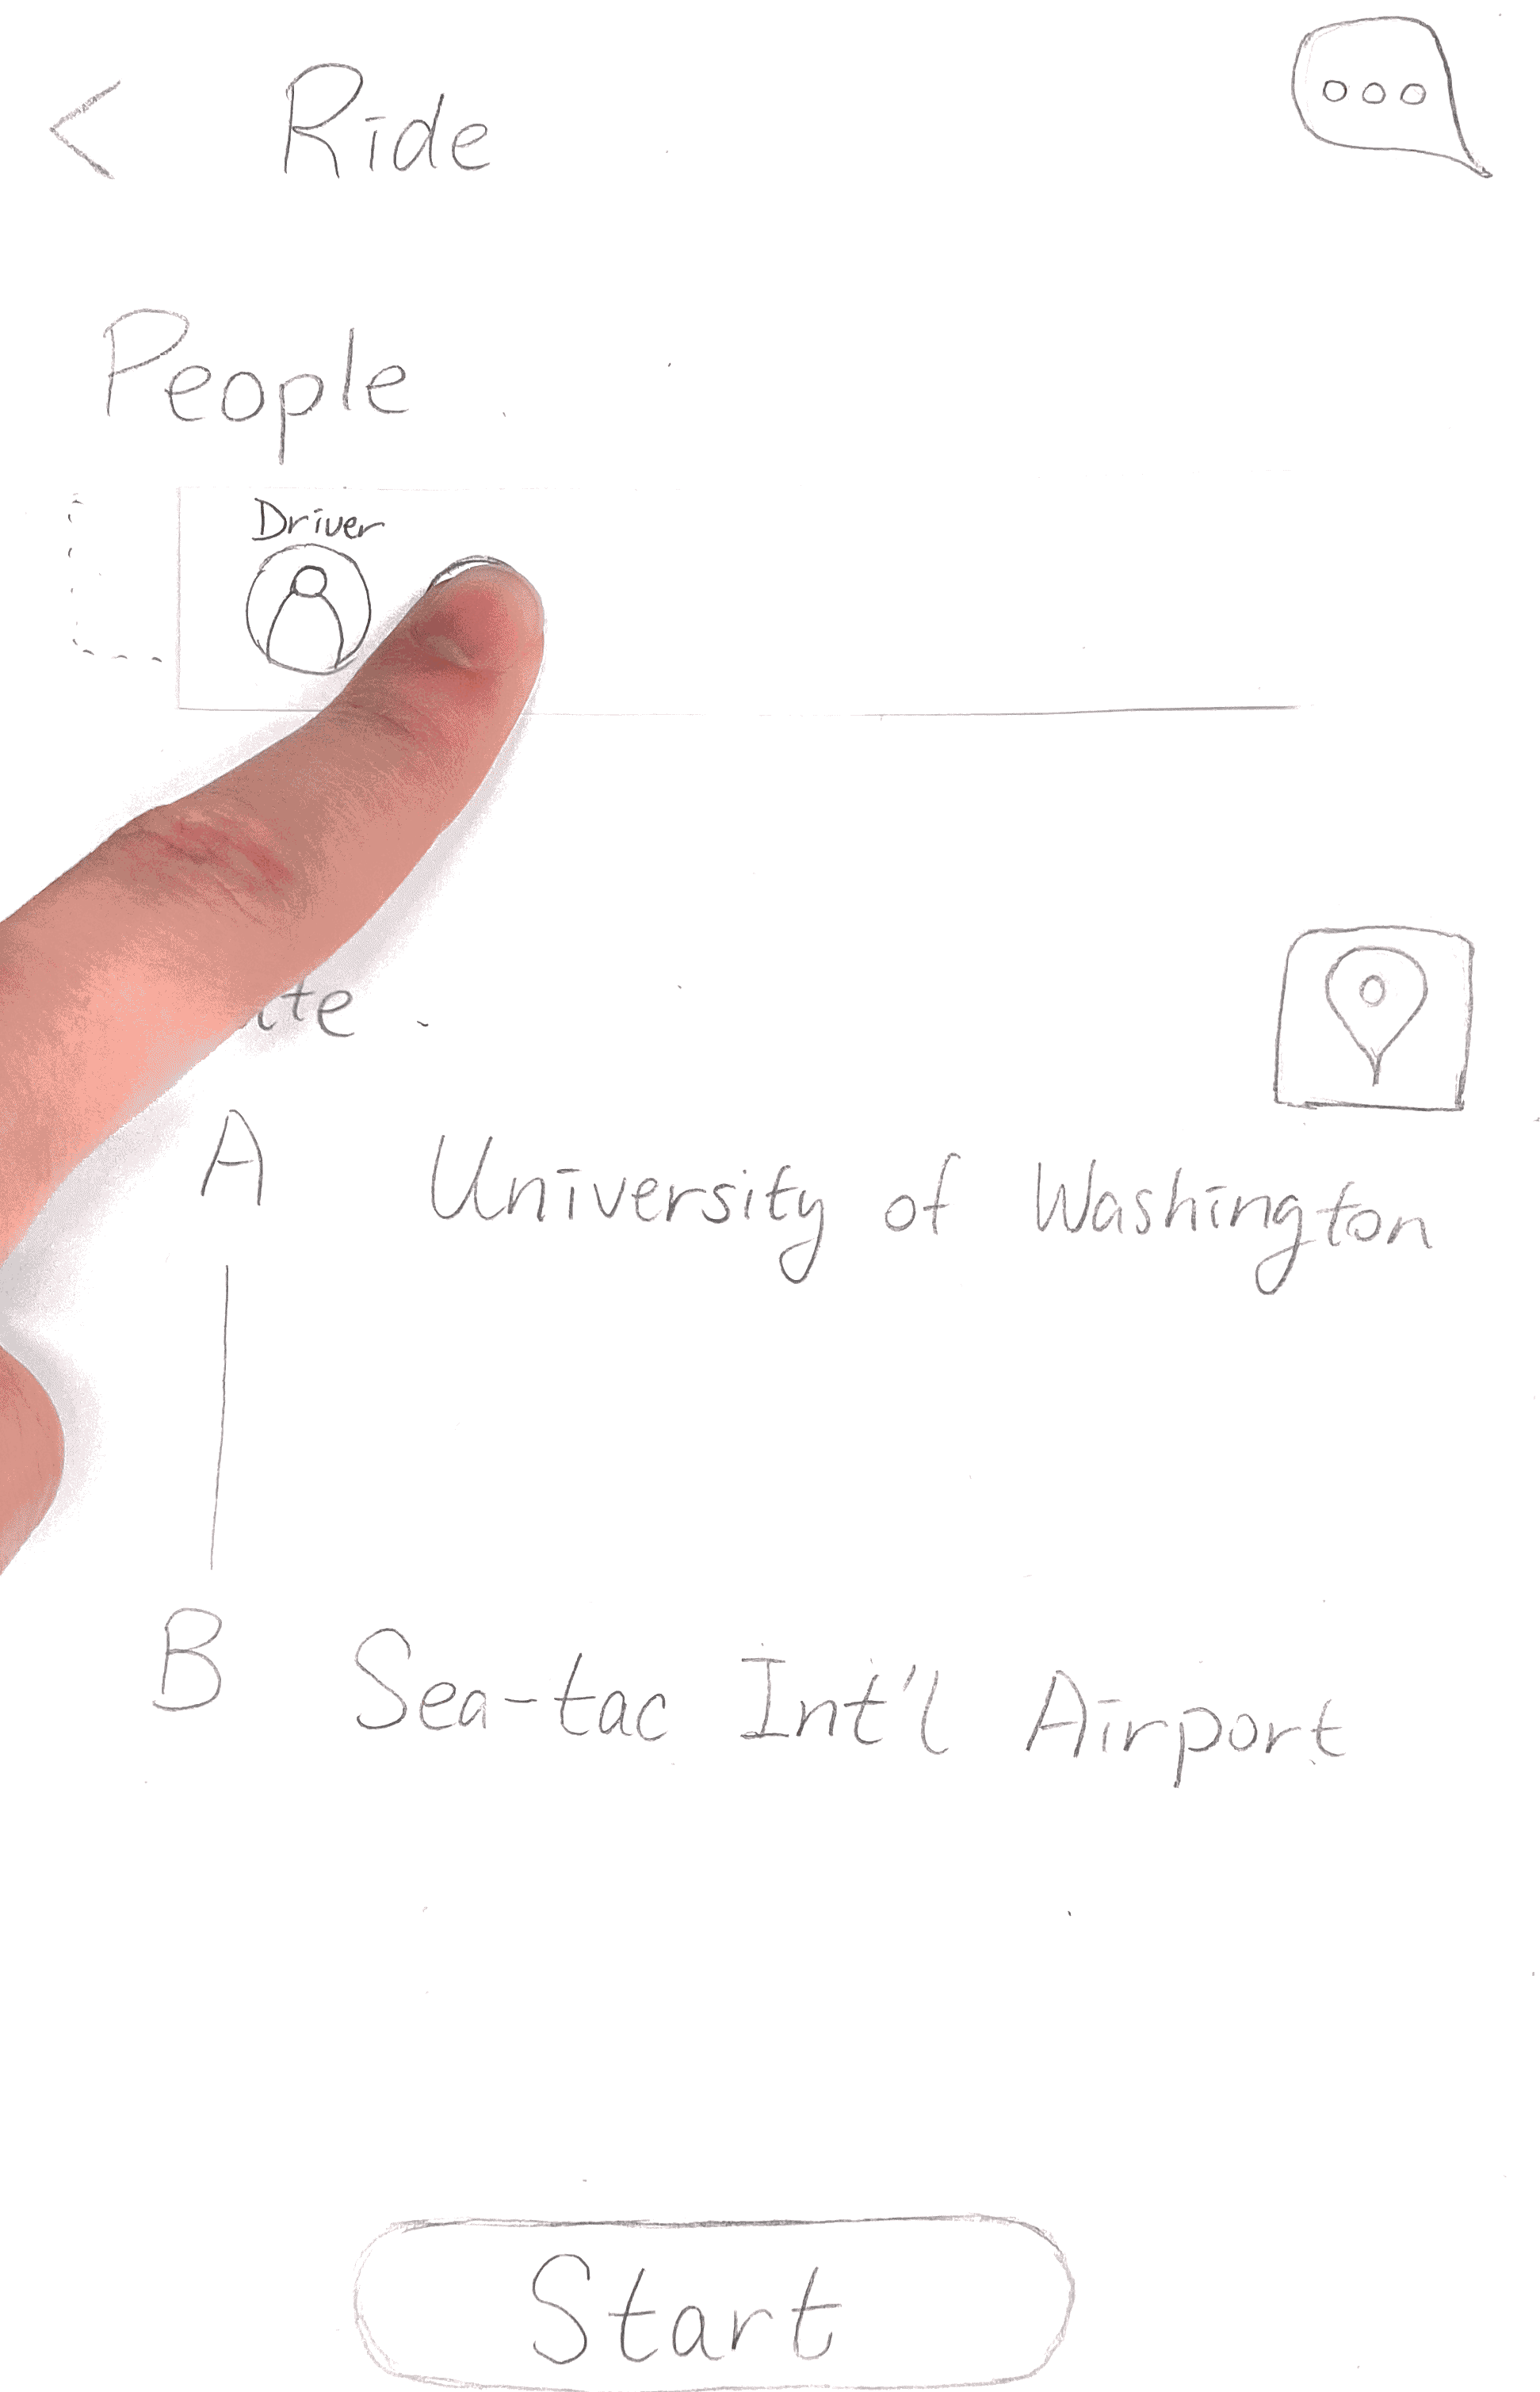 Ride
People
Driver
A University of Washington
B Sea-tac Int'l Airport
Start